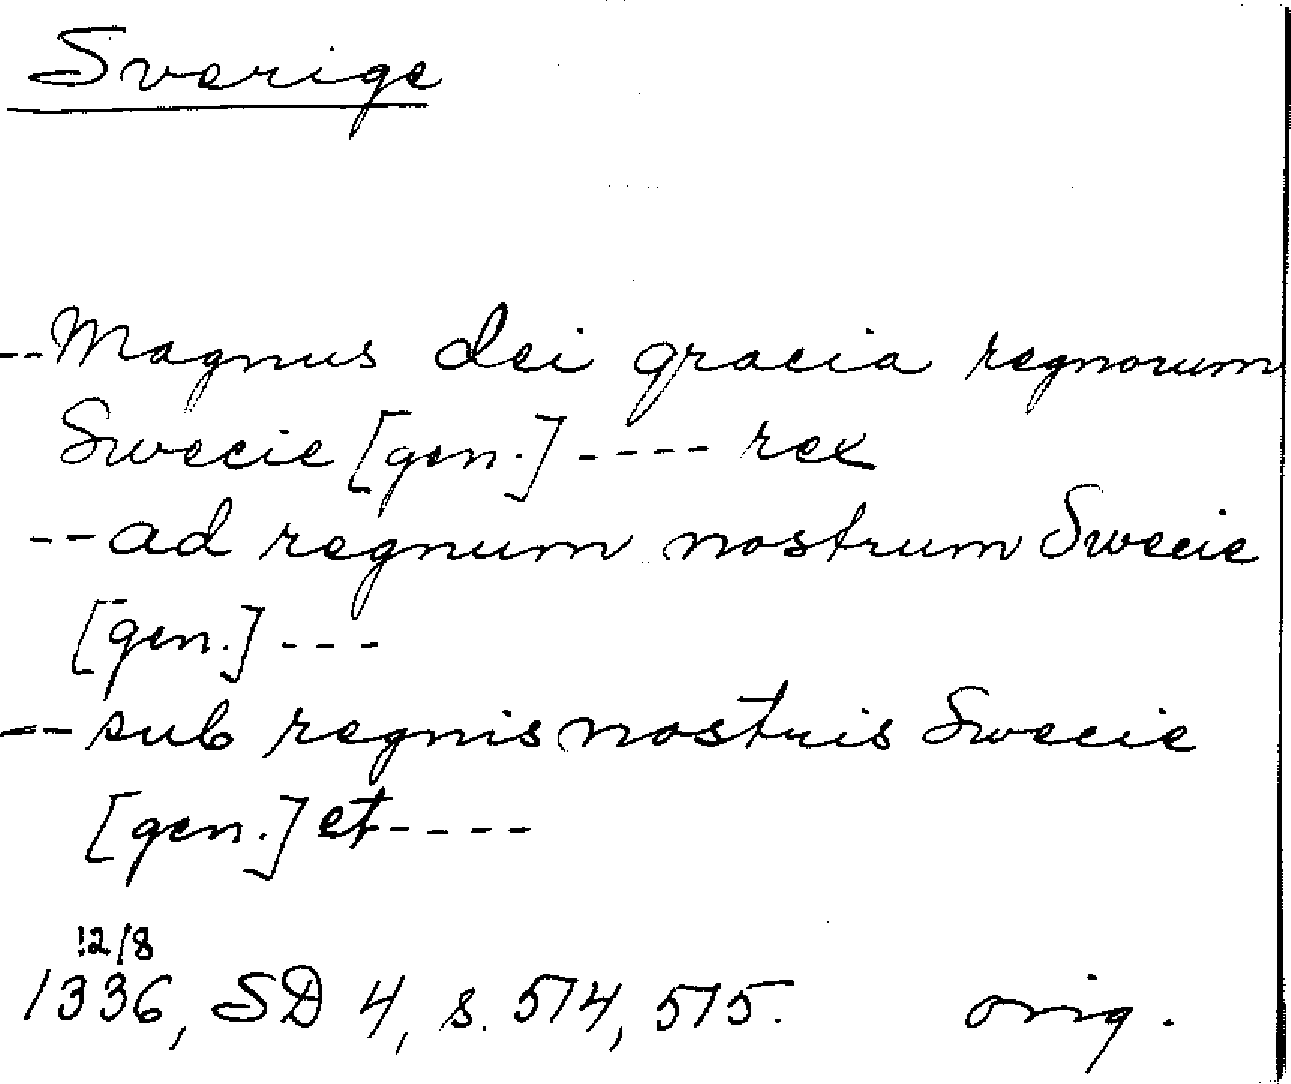 Sverige
--Magnus dei gracia regnorum
Swecie [gen.] ---- rex
--ad regnum nostrum Swecie
[gen.] ---
--sub regnis nostris Swecie
[gen.] et ----
12/8
1336, SD 4, s. 514, 515. orig.